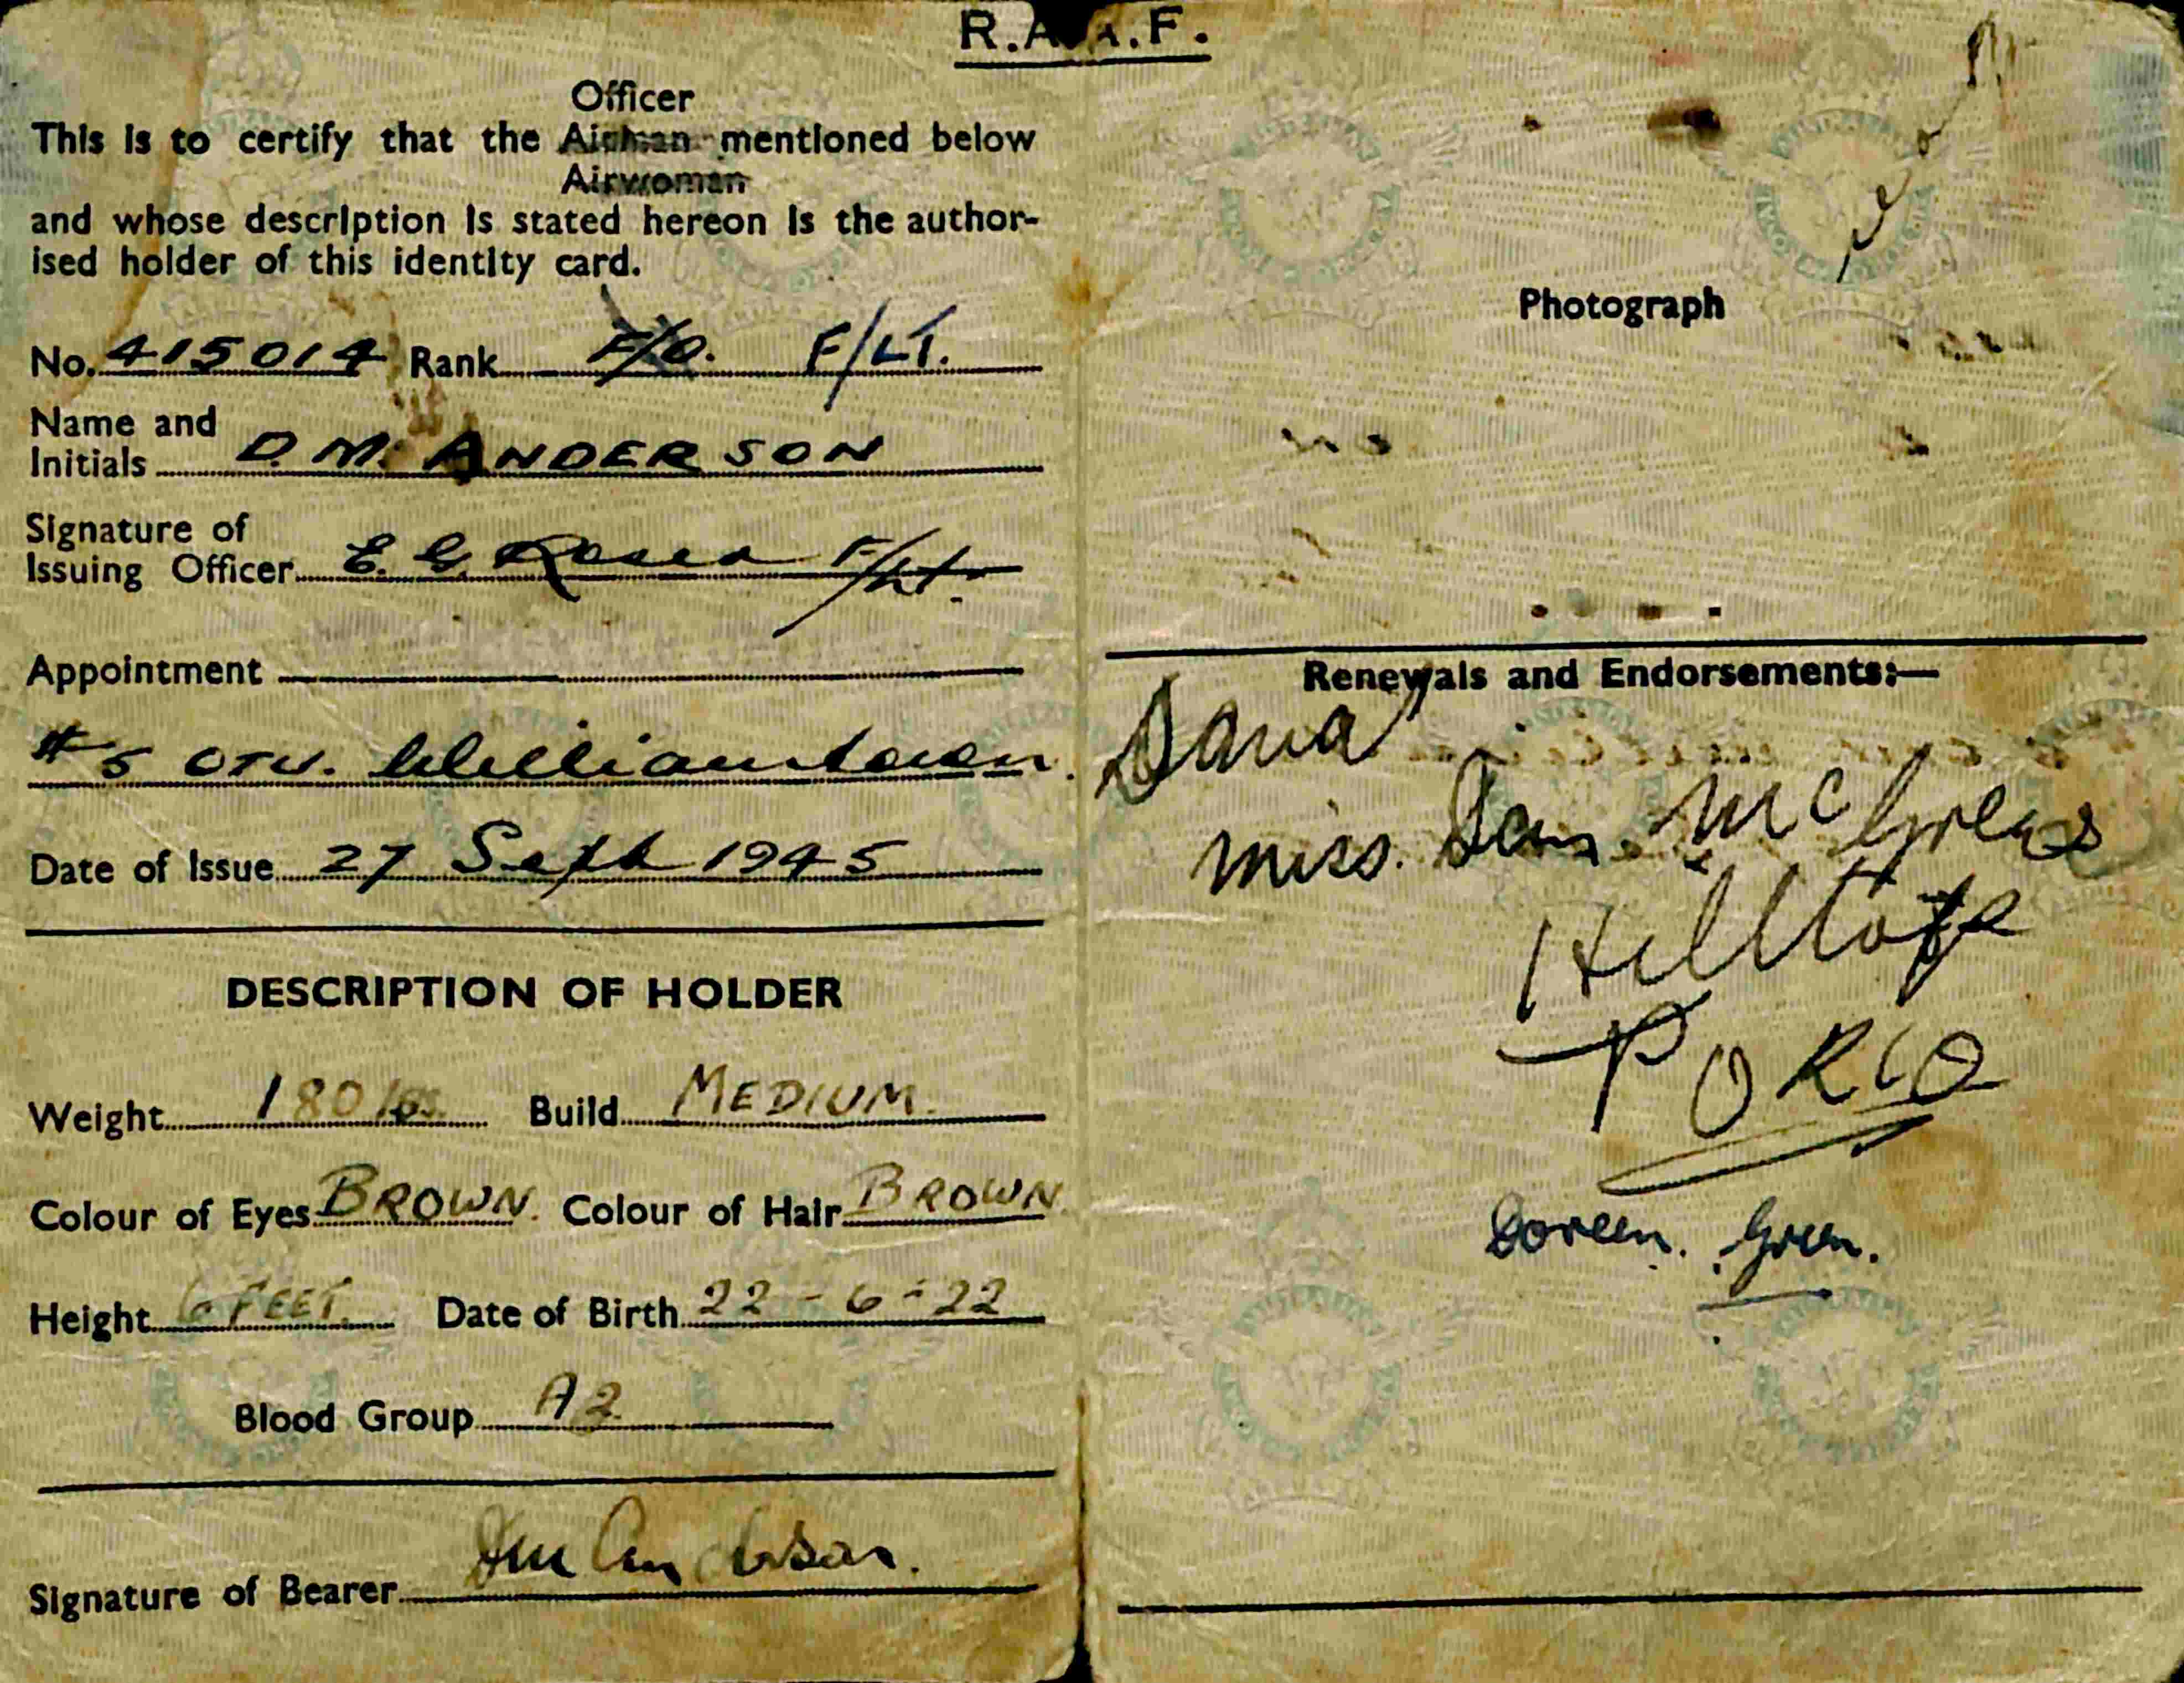 R.A.A.F.
Officer
This is to certify that the Airman mentioned below
Airwoman
and whose description is stated hereon is the author-
ised holder of this identity card.
No. 415014 Rank F/O. F/LT.
Name and
Initials D. M. ANDERSON
Signature of
Issuing Officer E. G. F/Lt.
Appointment
#5 OTU. Williamtown.
Date of Issue 27 Sept 1945
DESCRIPTION OF HOLDER
Weight 180 lbs. Build MEDIUM.
Colour of Eyes BROWN. Colour of Hair BROWN.
Height 6 FEET. Date of Birth 22-6-22
Blood Group A2
Signature of Bearer Anderson.
Photograph
Renewals and Endorsements:—
miss.
Doreen. Green.